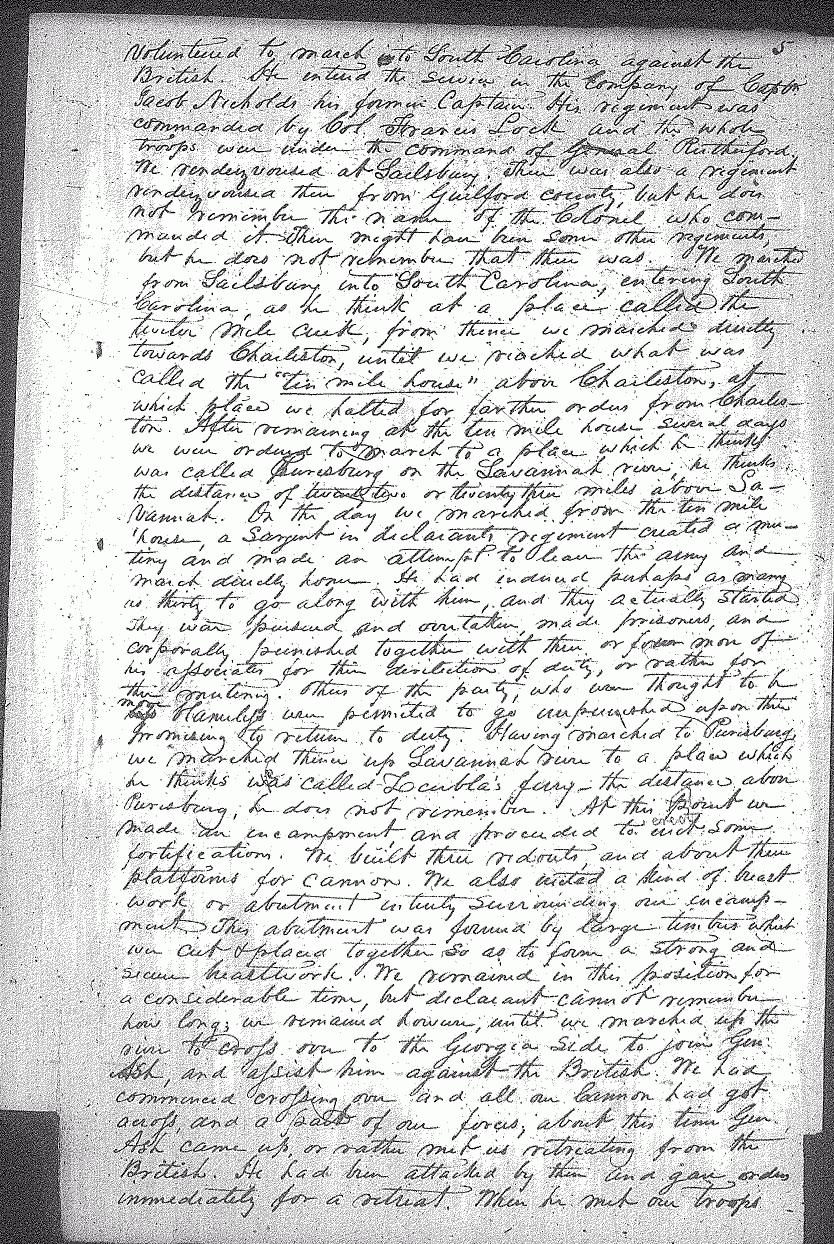 5
Volunteered to march into South Carolina against the
British. He entered the service in the Company of Captn
Jacob Nicholds his former Captain. His regiment was
commanded by Col. Francis Lock and the whole
troops were under the command of General Rutherford.
We rendezvoused at Sailsbury. There was also a regiment
rendezvoused there from Guilford county, but he does
not remember the name of the Colonel who com-
manded it. There might have been some other regiments,
but he does not remember that there was. We marched
from Sailsbury into South Carolina, entering South
Carolina, as he think at a place called the
twelve Mile creek, from thence we marched directly
towards Charleston, until we reached what was
called the "ten mile house" above Charleston, at
which place we halted for farther orders from Charles-
ton. After remaining at the ten mile house several days
we were ordered to march to a place which he thinks
was called Purisburg on the Savannah river. he thinks
the distance of twenty two or twenty three miles above Sa-
vannah. On the day we marched from the ten mile
house, a Sargent in declarants regiment created a mu-
tiny and made an attempt to leave the army and
march directly home. He had induced perhaps as many
as thirty to go along with him, and they actually started
They was pursued and overtaken, made prisoners, and
corporally punished together with three or four men of
his associates for their direliction of duty, or rather for
their mutiny. Others of the party, who were thought to be
more Harmless were permitted to go unpunished upon their
promising to return to duty. Having marched to Purisburg
we marched thence up Savannah river to a place which
he thinks was called Zeubla's ferry - the distance above
Purisburg, he does not remember. At this Point we
made an encampment and proceeded to erect some
fortifications. We built three redouts, and about three
platforms for cannon. We also erected a kind of breast
work or abutment entirely surrounding our encamp-
ment. This abutment was formed by large timbers which
we cut & placed together so as to form a strong and
secure breastwork. We remained in this position for
a considerable time, but declarant cannot remember
how long; we remained however, until we marched up the
river to cross over to the Georgia Side to join Gen.
Ash, and assist him against the British. We had
commenced crossing over and all our Cannon had got
across, and a part of our forces, about this time Gen.
Ash came up, or rather met us retreating from the
British. He had been attacked by them and gave orders
immediately for a retreat. When he met our troops